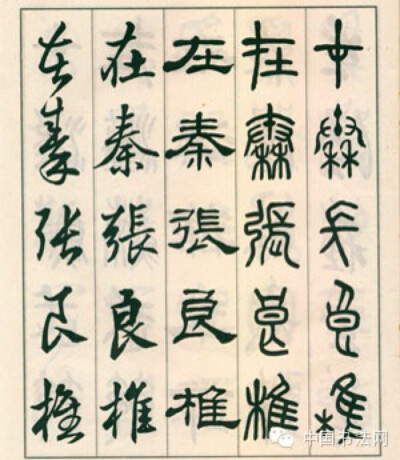 在秦張良椎
在秦張良椎
在秦張良椎
在秦張良椎
在秦张良椎
中国书法网